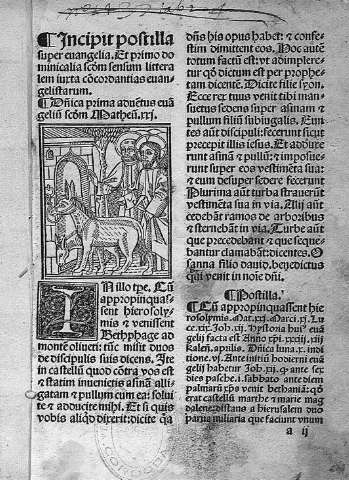 ¶Incipit postilla
super euangelia. Et primo do
minicalia scōm sensum littera
lem iuxta cōcordantias euan-
gelistarum.
¶Dñica prima aduētus euā
gelij scōm Matheū.xxj.
IN illo tpe. Cū
appropinquas-
sent hierosoly
mis & venissent
Bethphage ad
montē oliueti: tūc misit duos
de discipulis suis dicens. Ite
in castellū quod cōtra vos est
& statim inuenietis asinā alli-
gatam & pullum cum ea: solui
te & adducite mihi. Et si quis
vobis aliqd dixerit: dicite qa
dñs his opus habet: & confe-
stim dimittet eos. Hoc autē
totum factū est: vt adimplere-
tur qd dictum est per prophe-
tam dicentē. Dicite filie syon.
Ecce rex tuus venit tibi man-
suetus sedens super asinam &
pullum filiū subiugalis. Eun-
tes aūt discipuli: fecerunt sicut
precepit illis iesus. Et adduxe
runt asinā & pullū: & imposue-
runt super eos vestimēta sua:
& eum desuper sedere fecerunt
Plurima aūt turba strauerūt
vestimēta sua in via. Alij aūt
cedebāt ramos de arboribus
& sternebāt in via. Turbe aūt
que precedebant & que seque-
bantur clamabāt: dicentes. O
sanna filio dauid, benedictus
qui venit in noīe dñi.
¶Postilla.
¶Cū appropinquassent hie
rosolymis. Mat.xxj. Marci.xj. Lu
ce.xix. Joh.xij. Hystoria huiꝰ euā
gelij facta est Anno xp̄i.xxxiij. xiij
kalen. aprilis. Dñica luna.x. in
dictione.vj. Ante initiū hodierni euā
gelij habetur Joh.xij. q ante sex
dies pasche.i. sabbato ante diem
palmarū xp̄s venit bethaniā: qd
erat castellū marthe & marie mag
dalene: distans a hierusalem duo
parua miliaria que faciunt vnum
a ij